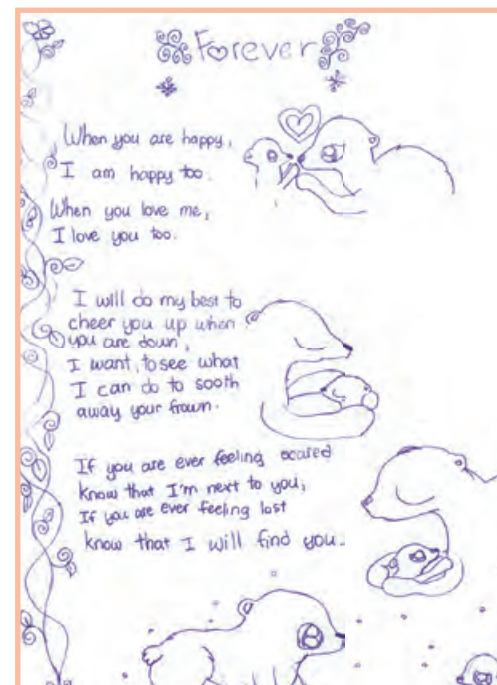 Forever
When you are happy,
I am happy too.
When you love me,
I love you too.
I will do my best to
cheer you up when
you are down,
I want, to see what
I can do to sooth
away your frown.
If you are ever feeling scared
know that I'm next to you,
If you are ever feeling lost
know that I will find you.